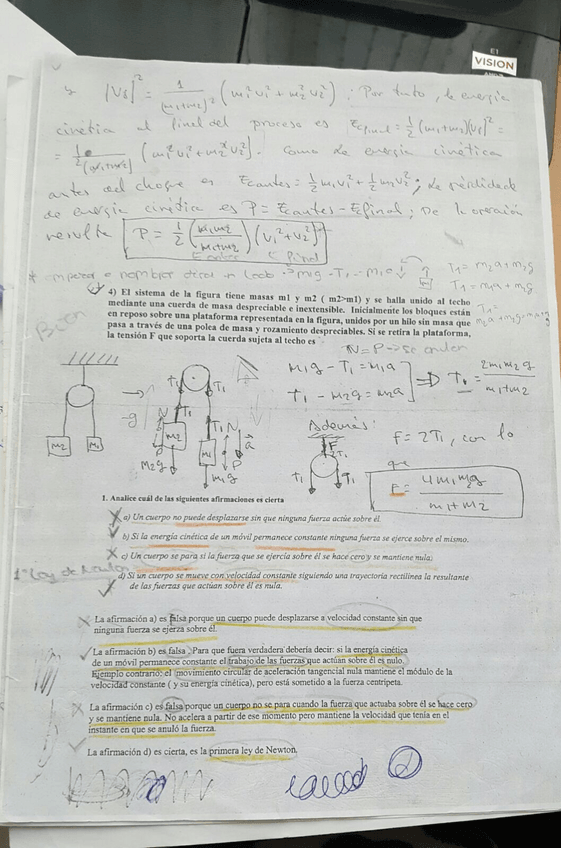 E1
VISION
|Vf|² = 1/(m1+m2)² (m1²v1² + m2²v2²). Por tanto, la energía
cinética al final del proceso es Ecfinal = 1/2 (m1+m2)(Vf)² =
= 1/2 1/(m1+m2) (m1²v1² + m2²v2²). Como la energía cinética
antes del choque es Ecantes = 1/2 m1v1² + 1/2 m2v2²; la pérdida de
de energía cinética es P = Ecantes - Ecfinal; De la operación
resulta P = 1/2 (m1m2/(m1+m2)) (v1² + v2²)
T1 = m2a + m2g
4) El sistema de la figura tiene masas m1 y m2 ( m2>m1) y se halla unido al techo
mediante una cuerda de masa despreciable e inextensible. Inicialmente los bloques están
en reposo sobre una plataforma representada en la figura, unidos por un hilo sin masa que
pasa a través de una polea de masa y rozamiento despreciables. Si se retira la plataforma,
la tensión F que soporta la cuerda sujeta al techo es
N = P ->
m1g - T1 = m1a
T1 - m2g = m2a
=> T1 = 2m1m2g/(m1+m2)
Además:
F = 2T1, con lo
que
F = 4m1m2g/(m1+m2)
M2
M1
-g
T1
T1
N
M2
P
M2g
T1
N
M1
P
m1g
a
F
2T1
T1
T1
1. Analice cuál de las siguientes afirmaciones es cierta
a) Un cuerpo no puede desplazarse sin que ninguna fuerza actúe sobre él.
b) Si la energía cinética de un móvil permanece constante ninguna fuerza se ejerce sobre el mismo.
c) Un cuerpo se para si la fuerza que se ejercía sobre él se hace cero y se mantiene nula.
1ª Ley de Newton
d) Si un cuerpo se mueve con velocidad constante siguiendo una trayectoria rectilínea la resultante
de las fuerzas que actúan sobre él es nula.
La afirmación a) es falsa porque un cuerpo puede desplazarse a velocidad constante sin que
ninguna fuerza se ejerza sobre él.
La afirmación b) es falsa. Para que fuera verdadera debería decir: si la energía cinética
de un móvil permanece constante el trabajo de las fuerzas que actúan sobre él es nulo.
Ejemplo contrario: el movimiento circular de aceleración tangencial nula mantiene el módulo de la
velocidad constante ( y su energía cinética), pero está sometido a la fuerza centrípeta.
La afirmación c) es falsa porque un cuerpo no se para cuando la fuerza que actuaba sobre él se hace cero
y se mantiene nula. No acelera a partir de ese momento pero mantiene la velocidad que tenía en el
instante en que se anuló la fuerza.
La afirmación d) es cierta, es la primera ley de Newton.
2